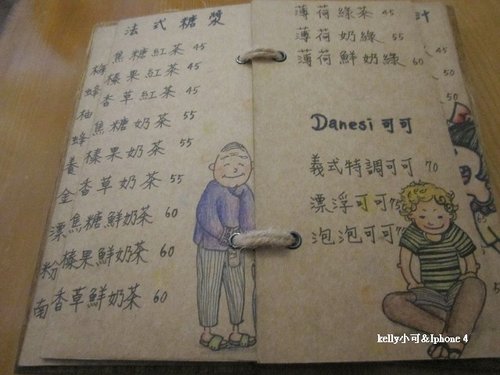 法式糖漿
焦糖紅茶 45
榛果紅茶 45
香草紅茶 45
焦糖奶茶 55
榛果奶茶 55
香草奶茶 55
焦糖鮮奶茶 60
榛果鮮奶茶 60
香草鮮奶茶 60
梅
蜂
柚
蜂
養
金
漂
粉
南
薄荷綠茶 45
薄荷奶綠 55
薄荷鮮奶綠 60
Danesi 可可
義式特調可可 70
漂浮可可 75
泡泡可可
汁
50
50
50
kelly小可&Iphone 4